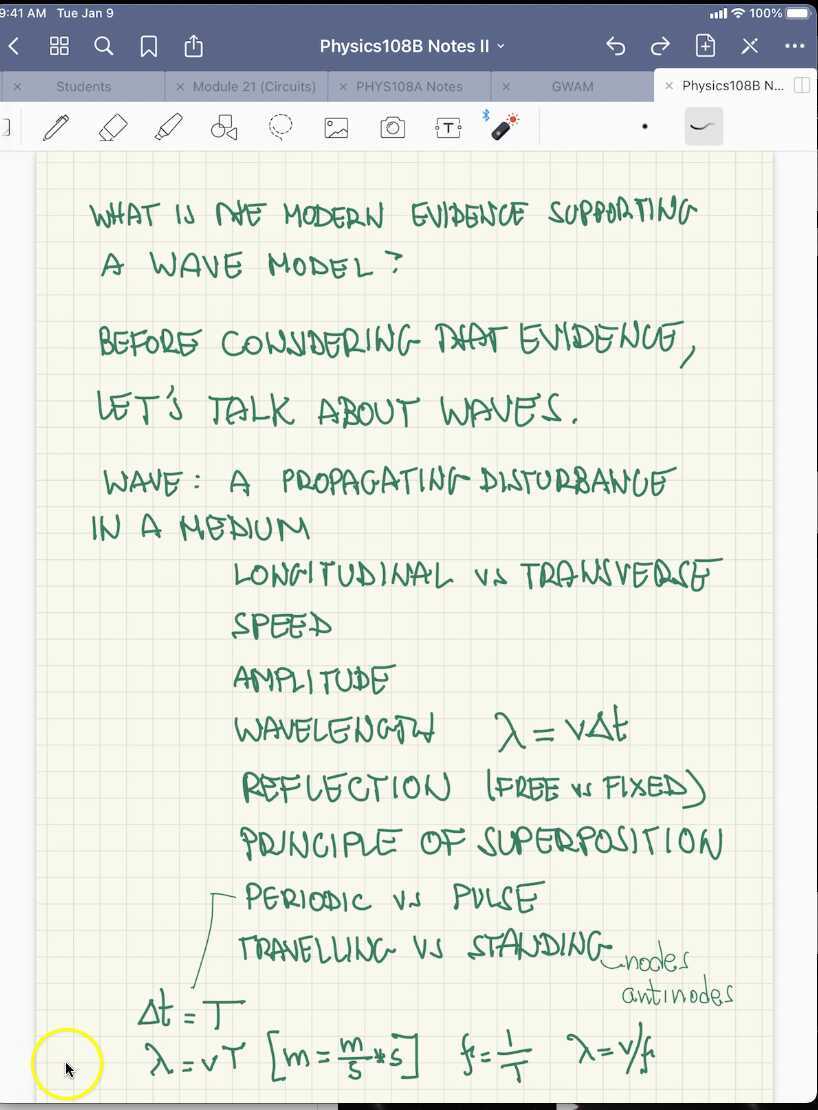 9:41 AM Tue Jan 9 100%
Physics108B Notes II
Students Module 21 (Circuits) PHYS108A Notes GWAM Physics108B N...
T
WHAT IS THE MODERN EVIDENCE SUPPORTING
A WAVE MODEL?
BEFORE CONSIDERING THAT EVIDENCE,
LET'S TALK ABOUT WAVES.
WAVE: A PROPAGATING DISTURBANCE
IN A MEDIUM
LONGITUDINAL vs TRANSVERSE
SPEED
AMPLITUDE
WAVELENGTH λ = vΔt
REFLECTION (FREE vs FIXED)
PRINCIPLE OF SUPERPOSITION
PERIODIC vs PULSE
TRAVELLING vs STANDING nodes
antinodes
Δt = T
λ = vT [m = m/s * s] f = 1/T λ = v/f